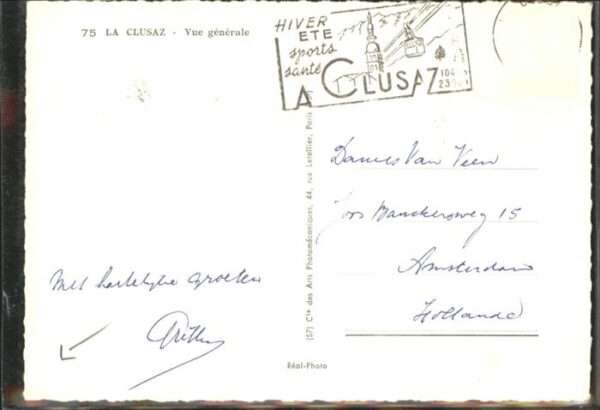 75 LA CLUSAZ - Vue générale
HIVER
ETE
sports
santé
LA CLUSAZ
(57) Cie des Arts Photomécaniques, 44, rue Letellier, Paris
Dames Van Veen
Jos Banckersweg 15
Amsterdam
Hollande
Met hartelijke groeten
Réal-Photo